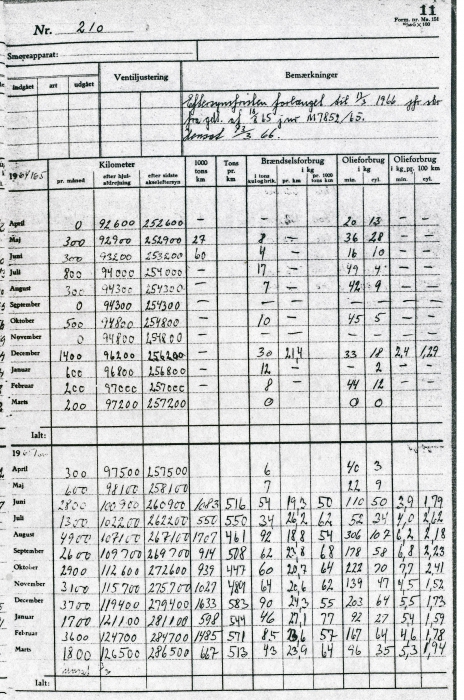 11
Form. nr. Ma. 151
Nr. 210
Smøreapparat:
Ventiljustering Bemærkninger
indgået art udgået
Eftersynsfristen forlænget til 1966
M7852/65.
66.
1964/65 Kilometer 1000 tons km Tons pr. km Brændselsforbrug i kg Olieforbrug i kg Olieforbrug i kg pr. 100 km
pr. måned efter hjulafdrejning efter sidste akselaftersyn i tons kul og brik. pr. km pr. 1000 tons km min. cyl. min. cyl.
April 0 92600 252600 — — — — 20 13 — —
Maj 300 92900 252900 27 8 — 36 28 — —
Juni 300 93200 253200 60 4 — 16 10 — —
Juli 800 94000 254000 — 17 — 49 4 — —
August 300 94300 254300 — 7 — 42 9 — —
September 0 94300 254300 — — — — — — —
Oktober 500 94800 254800 — 10 — 45 5 — —
November 0 94800 254800 — — — — — —
December 1400 96200 256200 — 30 21,4 33 18 2,4 1,29
Januar 600 96800 256800 — 12 — — 2 — —
Februar 200 97000 257000 — 8 44 12 — —
Marts 200 97200 257200 0 0 0
Ialt:
19
April 300 97500 257500 6 40 3
Maj 600 98100 258100 7 22 9
Juni 2800 100900 260900 1083 516 54 19,3 50 110 50 3,9 1,79
Juli 1300 102200 262200 550 550 34 26,2 62 52 34 4,0 2,62
August 4900 107100 267100 1707 461 92 18,8 54 306 107 6,2 2,18
September 2600 109700 269700 914 508 62 23,8 68 178 58 6,8 2,23
Oktober 2900 112600 272600 939 447 60 20,7 64 222 70 7,7 2,41
November 3100 115700 275700 1027 489 64 20,6 62 139 47 4,5 1,52
December 3700 119400 279400 1633 583 90 24,3 55 203 64 5,5 1,73
Januar 1700 121100 281100 598 544 46 27,1 77 92 27 5,4 1,59
Februar 3600 124700 284700 1485 571 85 23,6 57 167 64 4,6 1,78
Marts 1800 126500 286500 667 513 43 23,9 64 96 35 5,3 1,94
Ialt: